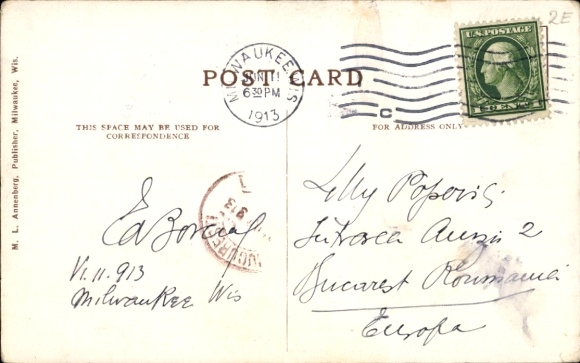 2E
U.S. POSTAGE
POST CARD
MILWAUKEE, WIS.
JUN 11
6 30 PM
1913
C
THIS SPACE MAY BE USED FOR
CORRESPONDENCE
FOR ADDRESS ONLY
M. L. Annenberg, Publisher, Milwaukee, Wis.
913
Ed
VI.11.913
Milwaukee Wis
Lilly Popovici
Intrarea 2
Bucarest Roumania
Europa